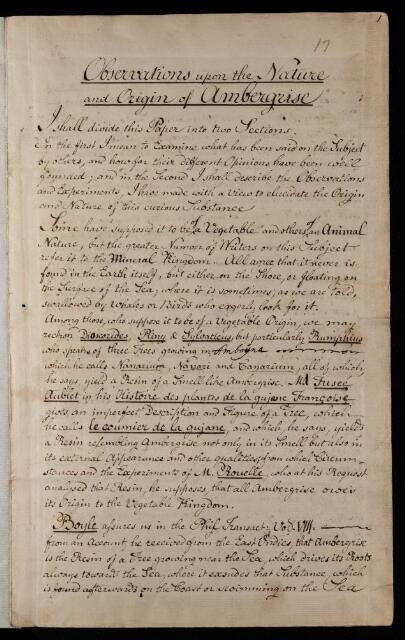 17
1
Observations upon the Nature
and Origin of Ambergrise
I shall divide this Paper into two Sections:
In the first I mean to examine what has been said on the Subject
by others, and how far their different Opinions have been well
founded; and in the Second I shall describe the Observations
and Experiments, I have made with a View to elucidate the Origin
and Nature of this curious Substance
Some have supposed it to be of a Vegetable and others of an Animal
Nature, but the greater Number of Writers on this Subject
refer it to the Mineral Kingdom. All agree that it never is
found in the Earth itself, but either on the Shore, or floating on
the Surface of the Sea; where it is sometimes, as we are told,
swallowed by Whales or Birds who eagerly look for it.
Among those, who suppose it to be of a Vegetable Origin, we may
reckon Dioscorides, Pliny & Sylvaticus, but particularly Rumphius
who speaks of three Trees growing in Amboyna
which he calls Nanarium, Navari and Canarium, all of which,
he says, yield a Resin of a Smell like Ambergrise. M. Fusée
Aublet in his Histoire des plantes de la gujane Françoise
gives an imperfect Description and Figure of a Tree, which
he calls le coumier de la gujane, and which, he says, yields
a Resin resembling Ambergrise not only in its Smell but also in
its external Appearance and other qualities; from which Circum-
stances and the Experiments of M. Rouelle, who at his Request
analised that Resin, he supposes, that all Ambergrise owes
its Origin to the Vegetable Kingdom.
Boyle assures us in the Phil. Transact: Vol: VIII.
from an Account he received from the East Indies, that Ambergrise
is the Resin of a Tree growing near the Sea, which drives its Roots
always toward the Sea, where it exsudes that Substance, which
is found afterwards on the Coast or swimming on the Sea